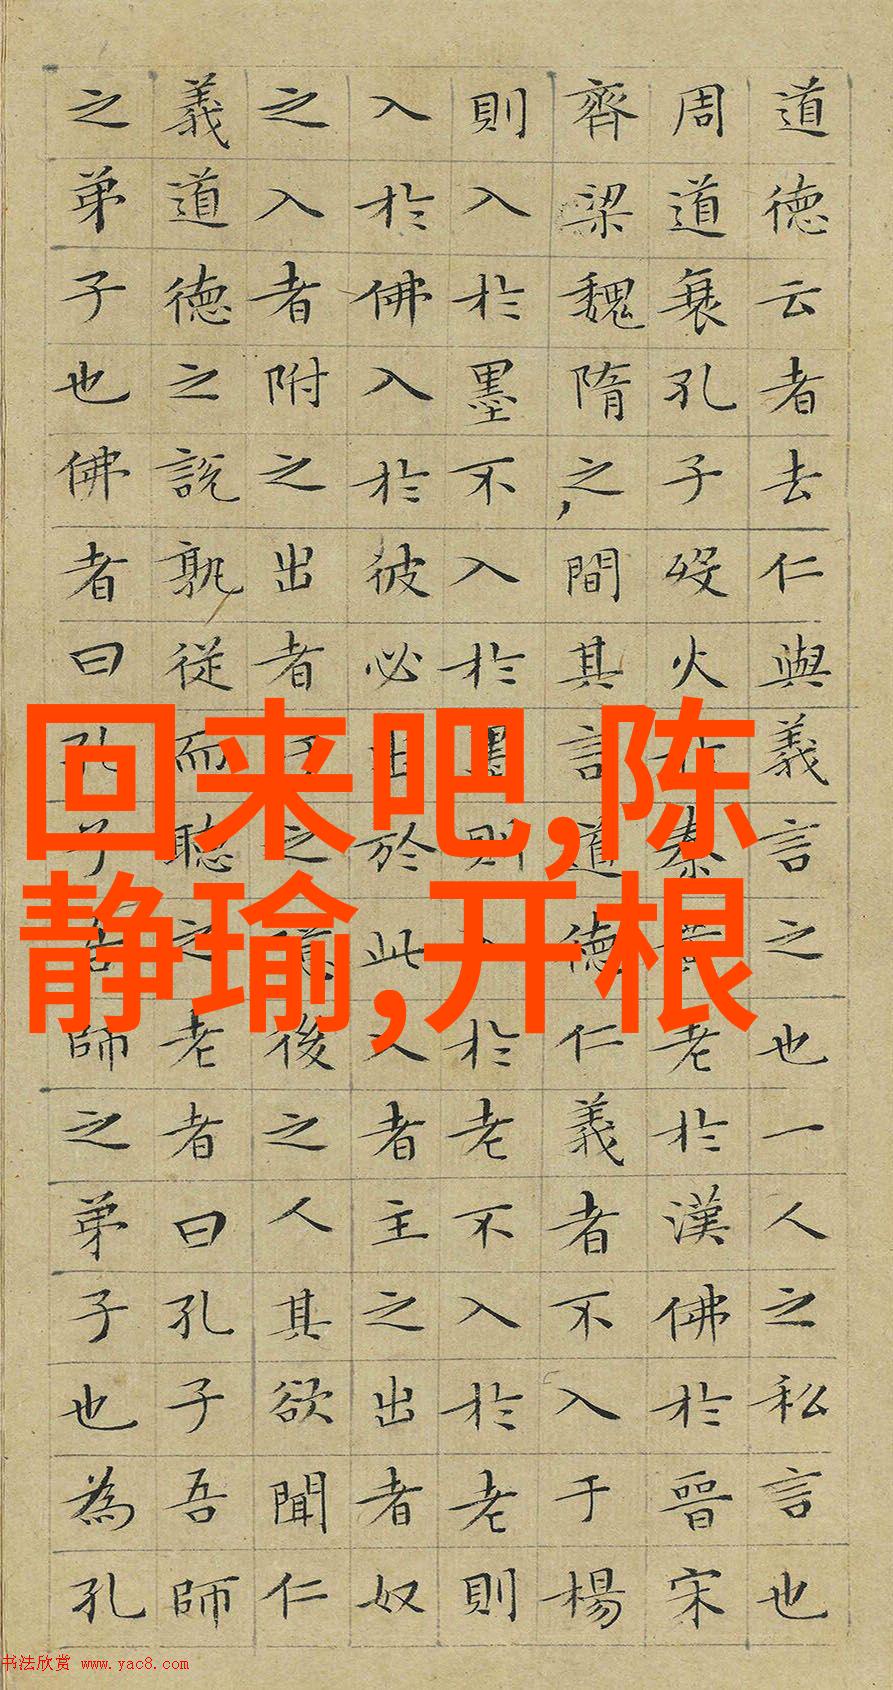 道德云者去仁與義言之也一人之私言也
周道衰孔子歿火於秦黃老於漢佛於晉宋
齊梁魏隋之間其言道德仁義者不入于楊
則入於墨不入於墨則入於老不入於老則
入於佛入於彼必出於此入者主之出者奴
之入者附之出者之噫後之人其欲聞仁
義道德之說孰從而聽之老者曰孔子吾師
之弟子也佛者曰孔子吾師之弟子也為孔
回来吧,陈
静瑜,开根
书法欣赏 www.yac8.com